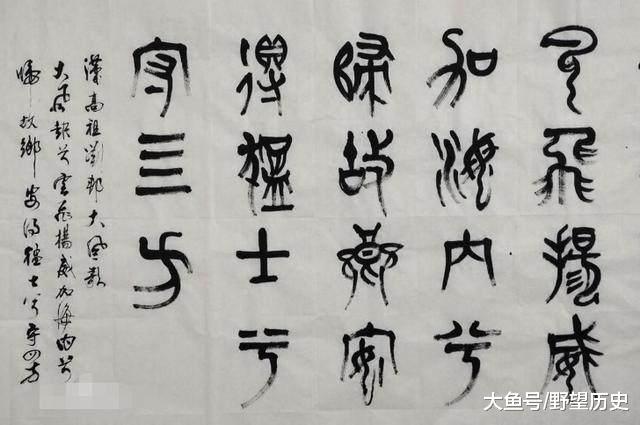 云飛揚威
加海内兮
歸故鄉安
得猛士兮
守三方
漢高祖劉邦大風歌
大風起兮雲飛揚威加海内兮
歸故鄉安得猛士兮守四方
大鱼号/野望历史